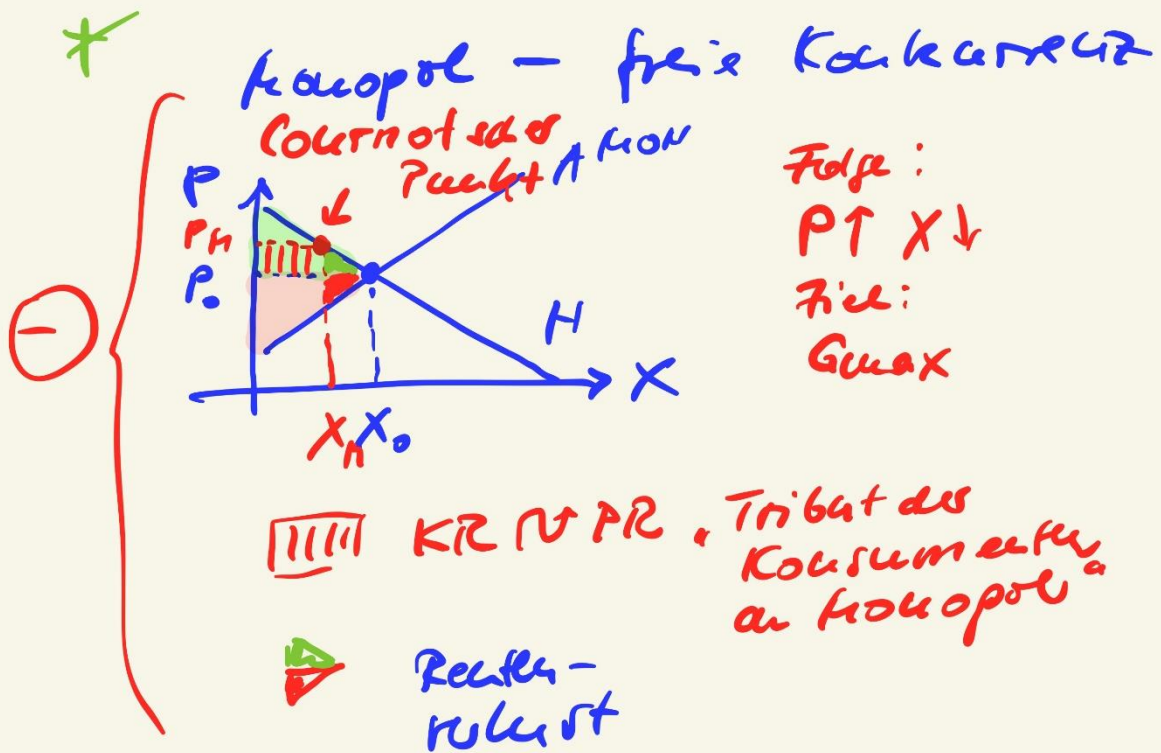 Monopol – freie Konkurrenz
Cournotscher
Punkt
A MON
P
PM
P0
N
X
XM X0
Folge:
P↑ X↓
Ziel:
Gmax
KR PR „Tribut des
Konsumenten
an Monopol“
Renten-
verlust